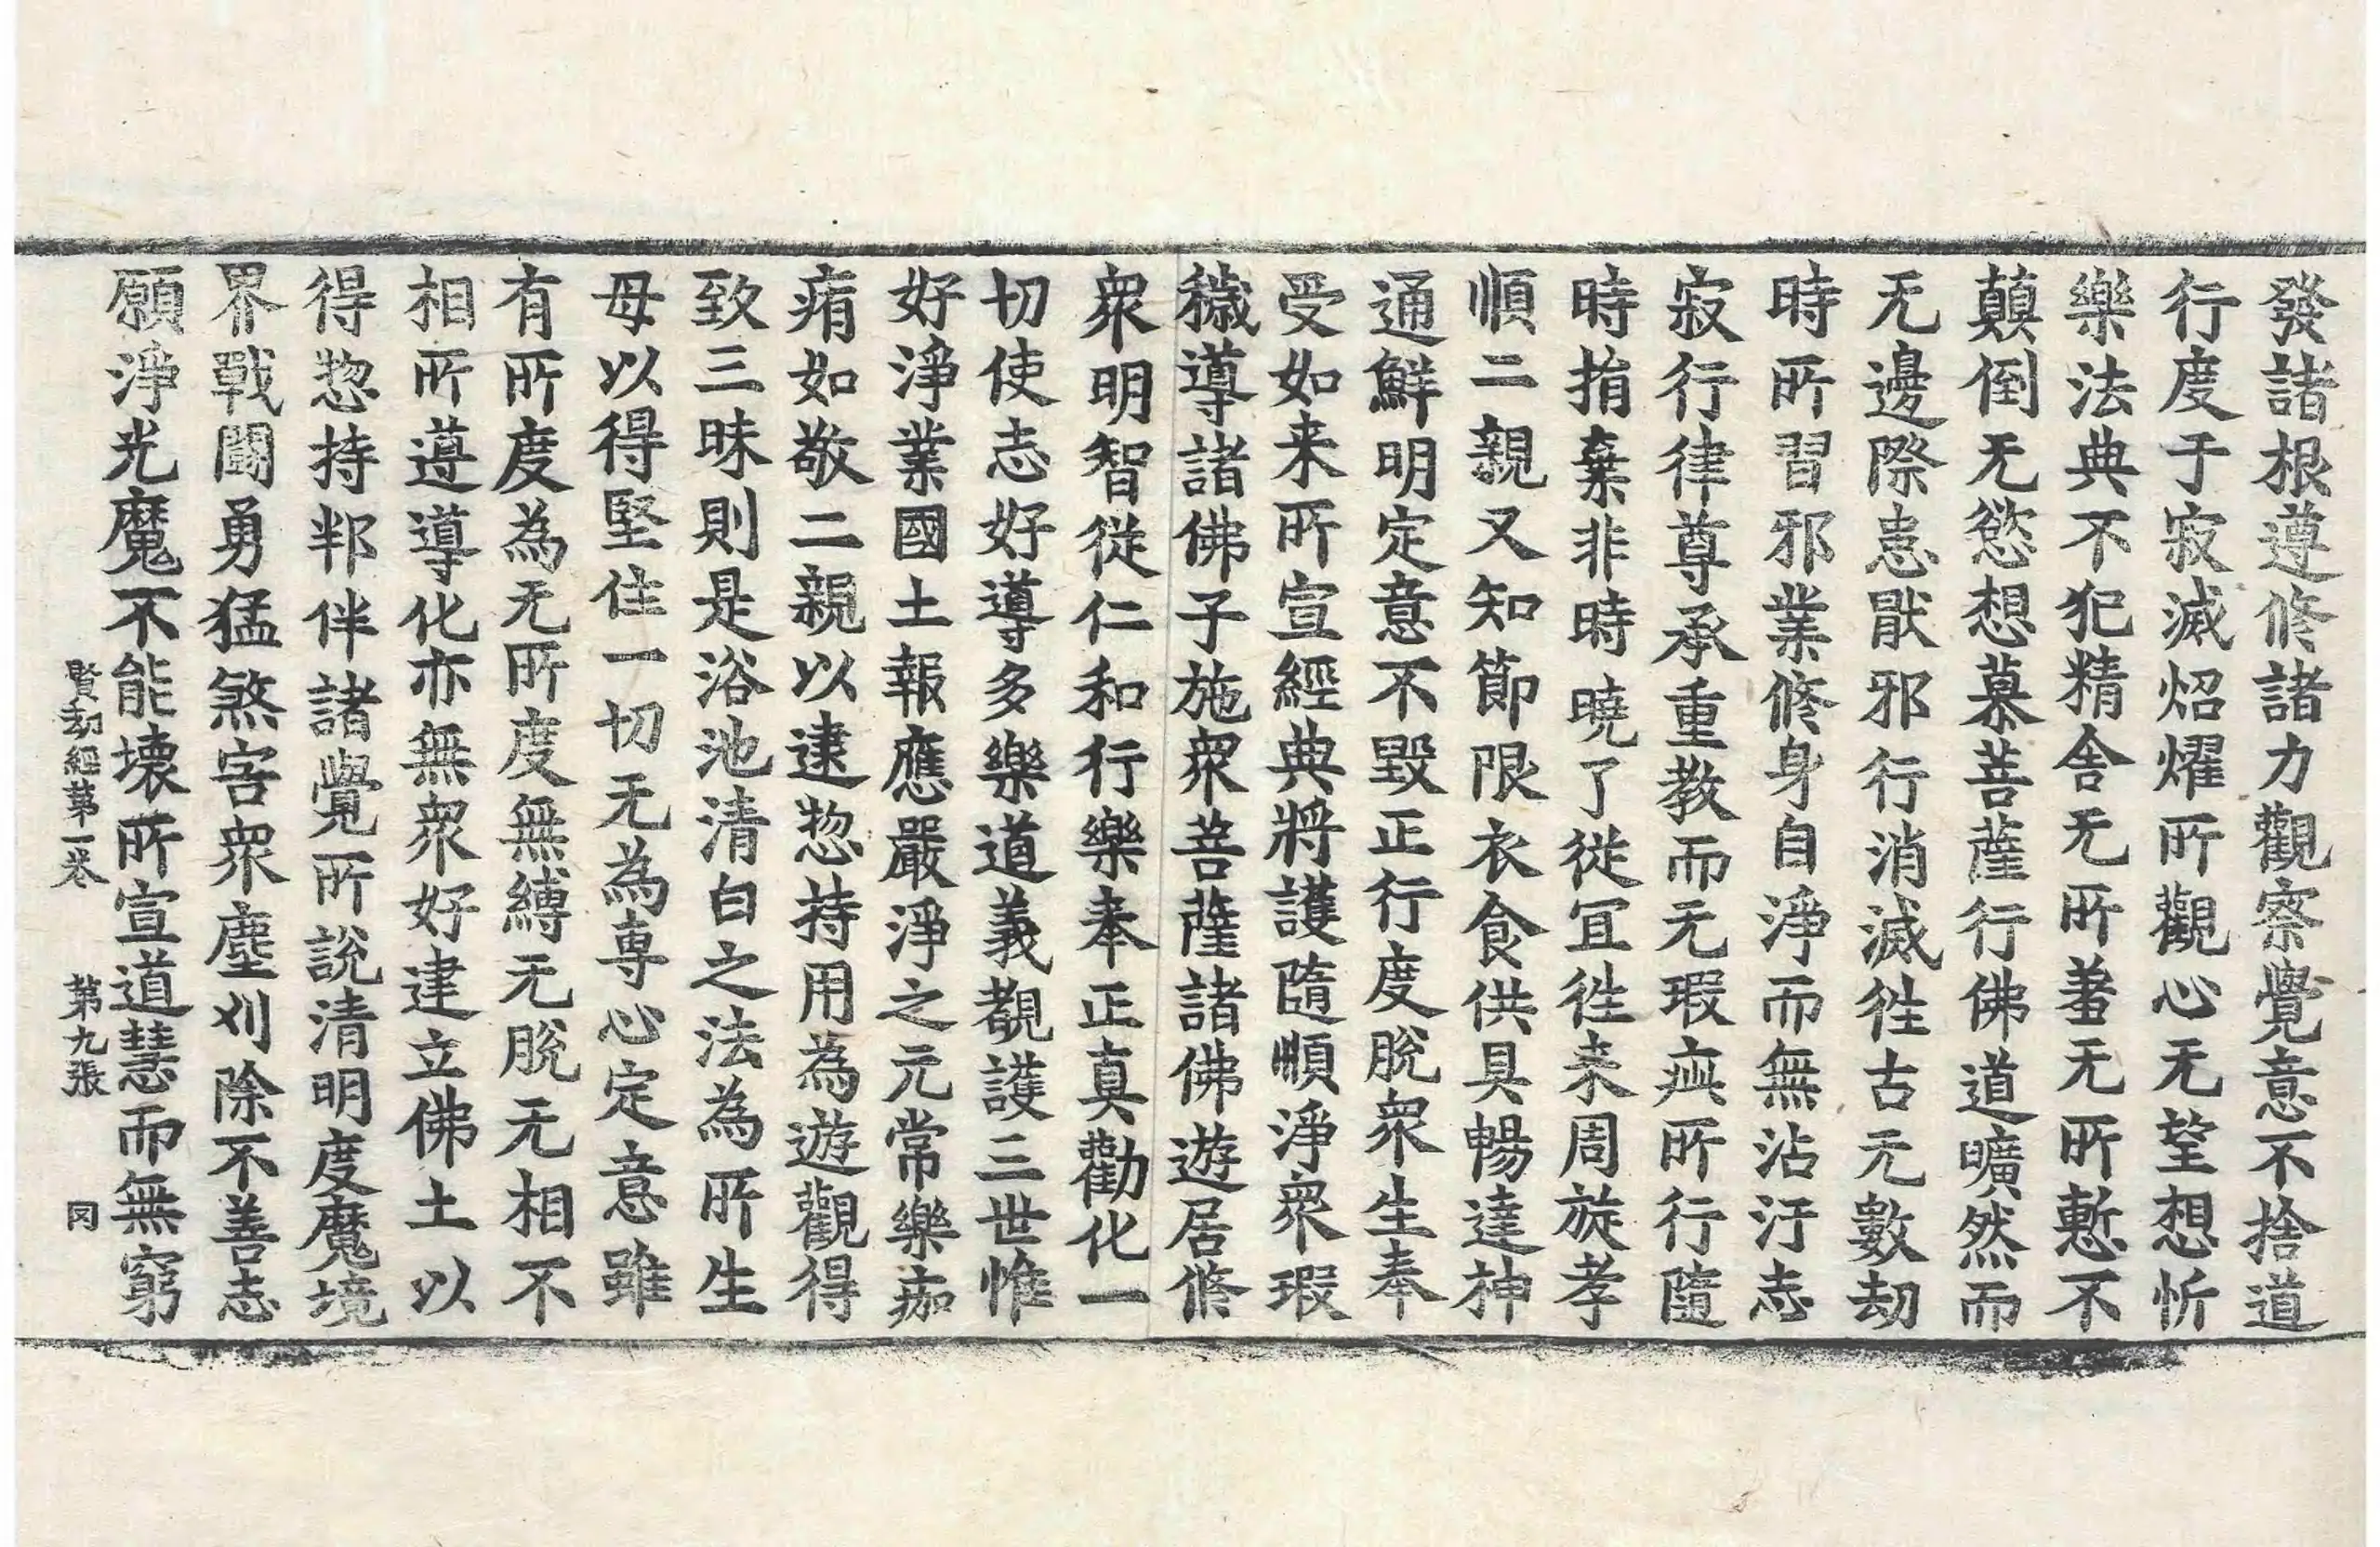 發諸根遵修諸力觀察覺意不捨道
行度于寂滅炤燿所觀心无望想忻
樂法典不犯精舍无所著无所慙不
顛倒无慾想慕菩薩行佛道曠然而
无邊際恚厭邪行消滅徃古无數劫
時所習邪業修身自淨而無沾汙志
寂行律尊承重教而无瑕疵所行隨
時捐棄非時曉了從冝徃来周旋孝
順二親又知節限衣食供具暢達神
通鮮明定意不毀正行度脫衆生奉
受如来所宣經典將護隨順淨衆瑕
穢導諸佛子施衆菩薩諸佛遊居修
衆明智從仁和行樂奉正真勸化一
切使志好導多樂道義觀護三世惟
好淨業國土報應嚴淨之元常樂痂
痏如敬二親以逮惣持用為遊觀得
致三昧則是浴池清白之法為所生
母以得堅住一切无為專心定意雖
有所度為无所度無縛无脫无相不
相所遵導化亦無衆好建立佛土以
得惣持邦伴諸覺所說清明度魔境
界戰鬪勇猛煞害衆塵刈除不善志
願淨光魔不能壞所宣道慧而無窮
賢劫經第一卷 第九張 罔